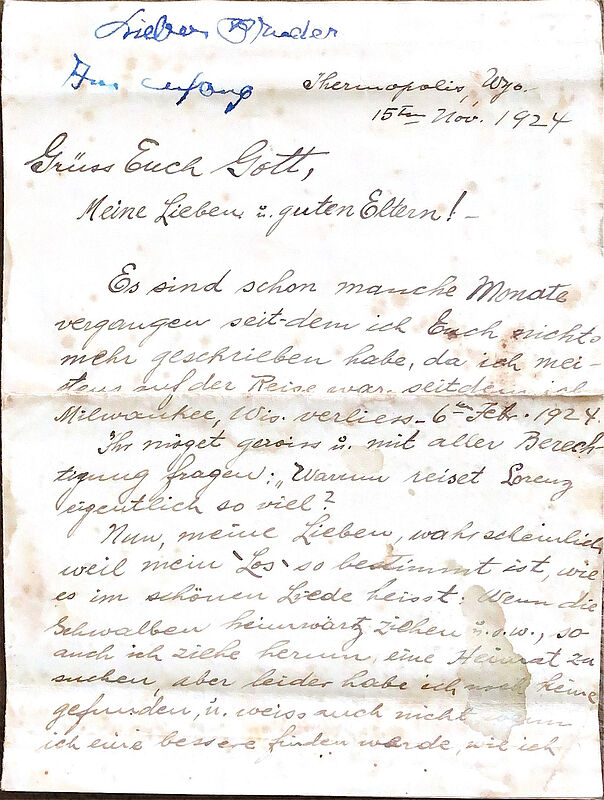 Lieber Bruder
Am anfang
Thermopolis, Wyo.
15ten Nov. 1924
Grüss Euch Gott,
Meine Lieben u. guten Eltern! –
Es sind schon manche Monate
vergangen seit-dem ich Euch nichts
mehr geschrieben habe, da ich mei-
stens auf der Reise war seitdem ich
Milwaukee, Wis. verliess – 6ten Feb. 1924.
Ihr möget gewiss u. mit aller Berech-
tigung fragen: „Warum reiset Lorenz
eigentlich so viel?
Nun, meine Lieben, wahrscheinlich
weil mein "Los" so bestimmt ist, wie
es im schönen Liede heisst: Wenn die
Schwalben heimwärtz ziehen u.s.w., so
auch ich ziehe herum, eine Heimat zu
suchen, aber leider habe ich noch keine
gefunden, u. weiss auch nicht wann
ich eine bessere finden werde, wie ich